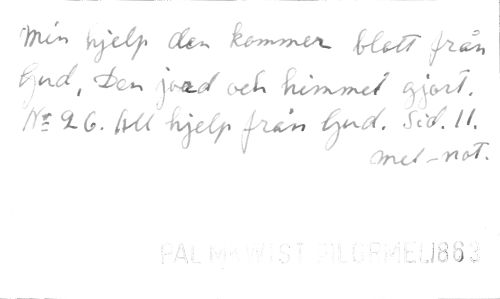 Min hjelp den kommer blott från
Gud, Den jord och himmel gjort.
No 26. All hjelp från Gud. Sid. 11.
mel-not.
PALMKWIST PILGRMEL/863